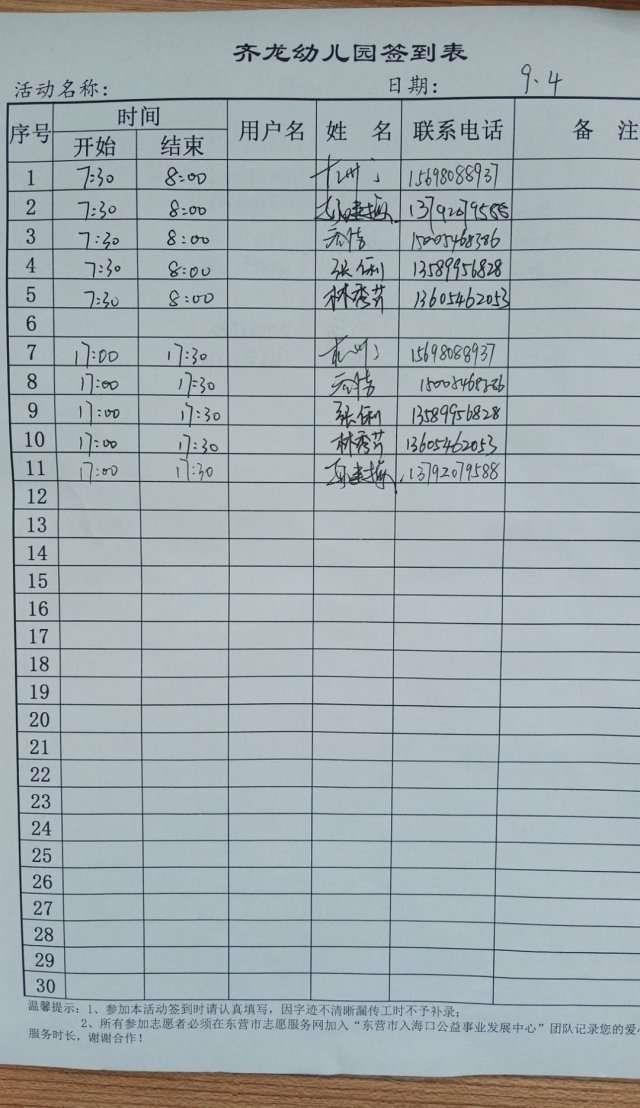 齐龙幼儿园签到表
活动名称: 日期: 9.4
序号 时间 用户名 姓 名 联系电话 备 注
开始 结束
1 7:30 8:00 15698088937
2 7:30 8:00 13792079588
3 7:30 8:00 15005468386
4 7:30 8:00 张俐 13589956828
5 7:30 8:00 林秀芹 13605462053
6
7 17:00 17:30 15698088937
8 17:00 17:30 15005468386
9 17:00 17:30 张俐 13589956828
10 17:00 17:30 林秀芹 13605462053
11 17:00 17:30 13792079588
12
13
14
15
16
17
18
19
20
21
22
23
24
25
26
27
28
29
30
温馨提示:1、参加本活动签到时请认真填写,因字迹不清晰漏传工时不予补录;
2、所有参加志愿者必须在东营市志愿服务网加入“东营市入海口公益事业发展中心”团队记录您的爱
服务时长,谢谢合作!